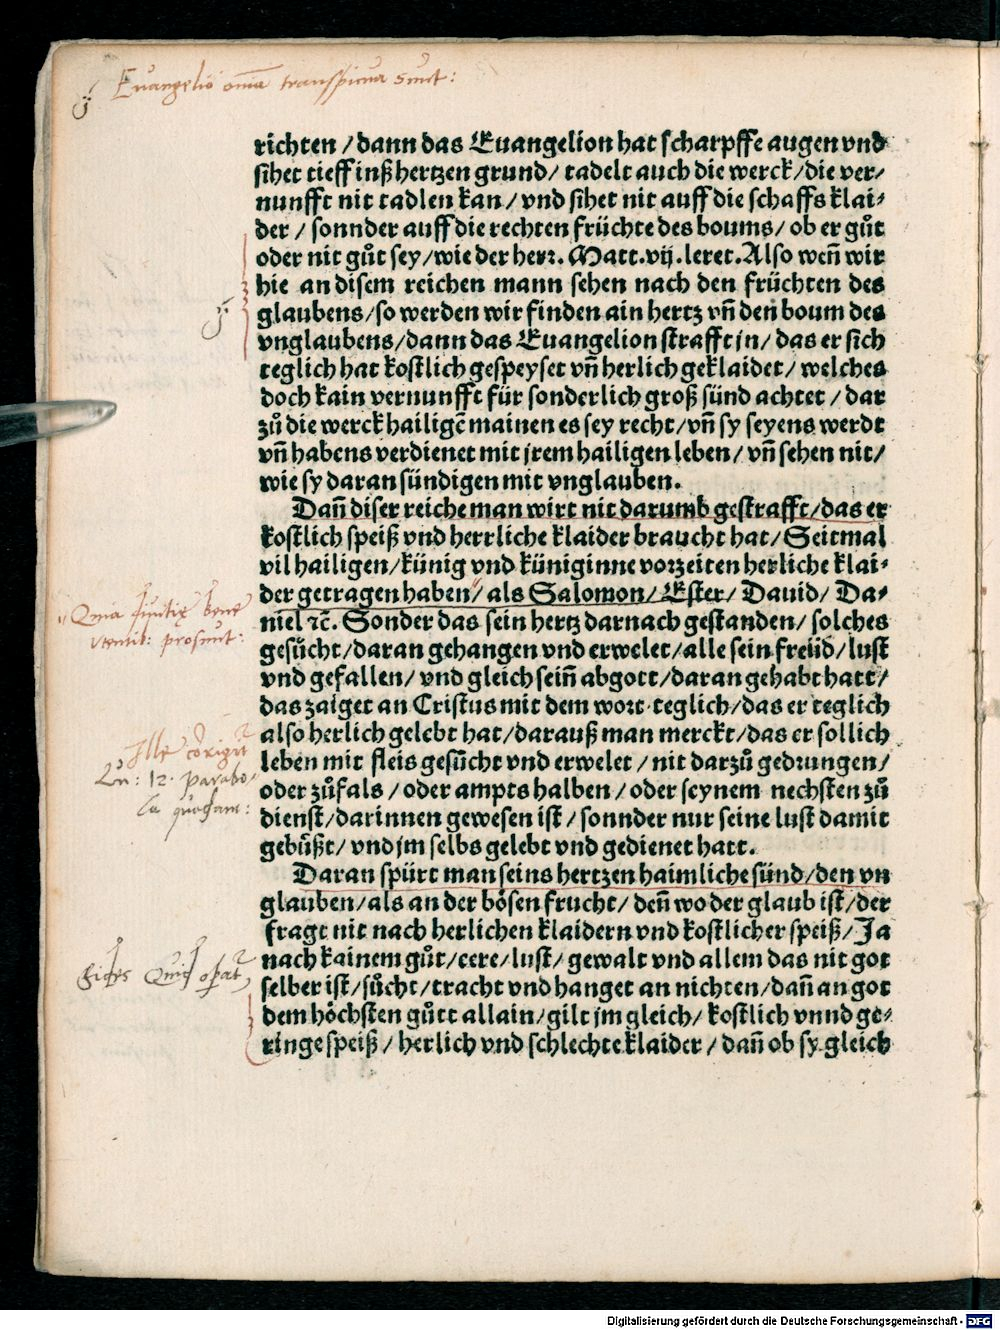 Euangelio omnia transpicua sunt:
richten / dann das Euangelion hat scharpffe augen vnd
sihet tieff inß hertzen grund / tadelt auch die werck / die ver⸗
nunfft nit tadlen kan / vnd sihet nit auff die schaffs klai⸗
der / sonnder auff die rechten früchte des boums / ob er gůt
oder nit gůt sey / wie der herr. Matt. vij. leret. Also weñ wir
hie an disem reichen mann sehen nach den früchten des
glaubens / so werden wir finden ain hertz vñ den boum des
vnglaubens / dann das Euangelion strafft jn / das er sich
teglich hat kostlich gespeyset vñ herlich geklaidet / welches
doch kain vernunfft für sonderlich groß sünd achtet / dar
zů die werckhailigē mainen es sey recht / vñ sy seyens werdt
vñ habens verdienet mit jrem hailigen leben / vñ sehen nit /
wie sy daran sündigen mit vnglauben.
Dañ diser reiche man wirt nit darumb gestrafft / das er
kostlich speiß vnd herrliche klaider braucht hat / Seitmal
vil hailigen / künig vnd küniginne vorzeiten herliche klai⸗
der getragen haben / als Salomon / Ester / Dauid / Da⸗
niel ꝛc̃. Sonder das sein hertz darnach gestanden / solches
gesůcht / daran gehangen vnd erwelet / alle sein freüd / lust
vnd gefallen / vnd gleich seiñ abgott / daran gehabt hatt /
das zaiget an Cristus mit dem wort teglich / das er teglich
also herlich gelebt hat / darauß man merckt / das er sollich
leben mit fleis gesůcht vnd erwelet / nit darzů gedrungen /
oder zůfals / oder ampts halben / oder seynem nechsten zů
dienst / darinnen gewesen ist / sonnder nur seine lust damit
gebüßt / vnd jm selbs gelebt vnd gedienet hatt.
Daran spürt man seins hertzen haimliche sünd / den vn
glauben / als an der bösen frucht / deñ wo der glaub ist / der
fragt nit nach herlichen klaidern vnd kostlicher speiß / Ja
nach kainem gůt / eere / lust / gewalt vnd allem das nit got
selber ist / sůcht / tracht vnd hanget an nichten / dañ an got
dem höchsten gůtt allain / gilt jm gleich / kostlich vnnd ge⸗
ringe speiß / herlich vnd schlechte klaider / dañ ob sy gleich
Quia diuitię bene
vtentib: prosunt:
Ille corrigit
Lu: 12. parabo⸗
la quadam:
Fides Quid
Digitalisierung gefördert durch die Deutsche Forschungsgemeinschaft - DFG